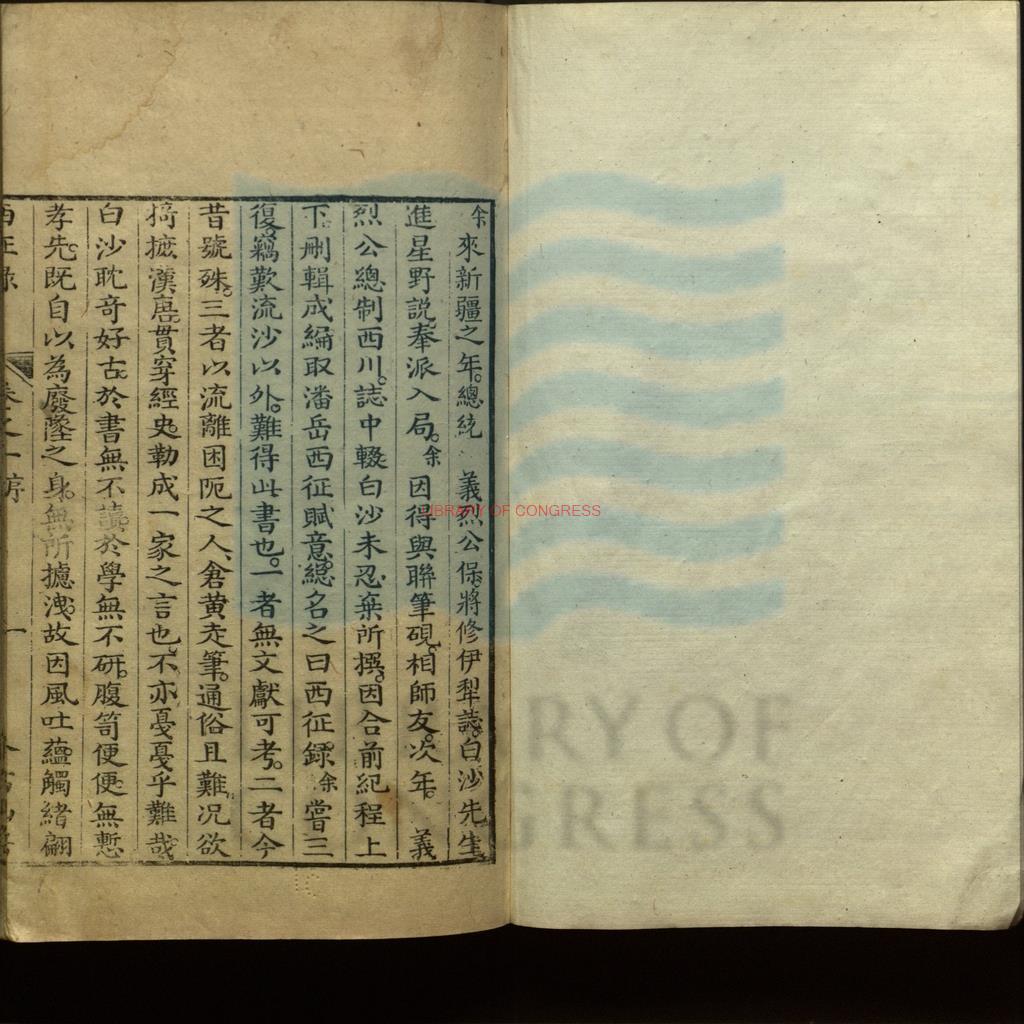 余來新疆之年總統 義烈公保將修伊犁誌白沙先生
進星野說奉派入局余因得與聯筆硯相師友次年 義
烈公總制西川誌中輟白沙未忍棄所撰因合前紀程上
下刪輯成編取潘岳西征賦意總名之曰西征錄余嘗三
復竊歎流沙以外難得此書也一者無文獻可考二者今
昔號殊三者以流離困阨之人倉黃走筆通俗且難况欲
摛摭漢唐貫穿經史勒成一家之言也不亦戞戞乎難哉
白沙耽奇好古於書無不讀於學無不研腹笥便便無慙
孝先既自以為廢墜之身無所攄洩故因風吐蘊觸緒翩
西征錄 卷之一序 一
LIBRARY OF CONGRESS
RY OF
GRESS